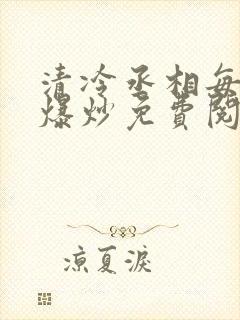 清冷丞相每
爆炒免費閱
凉夏淚